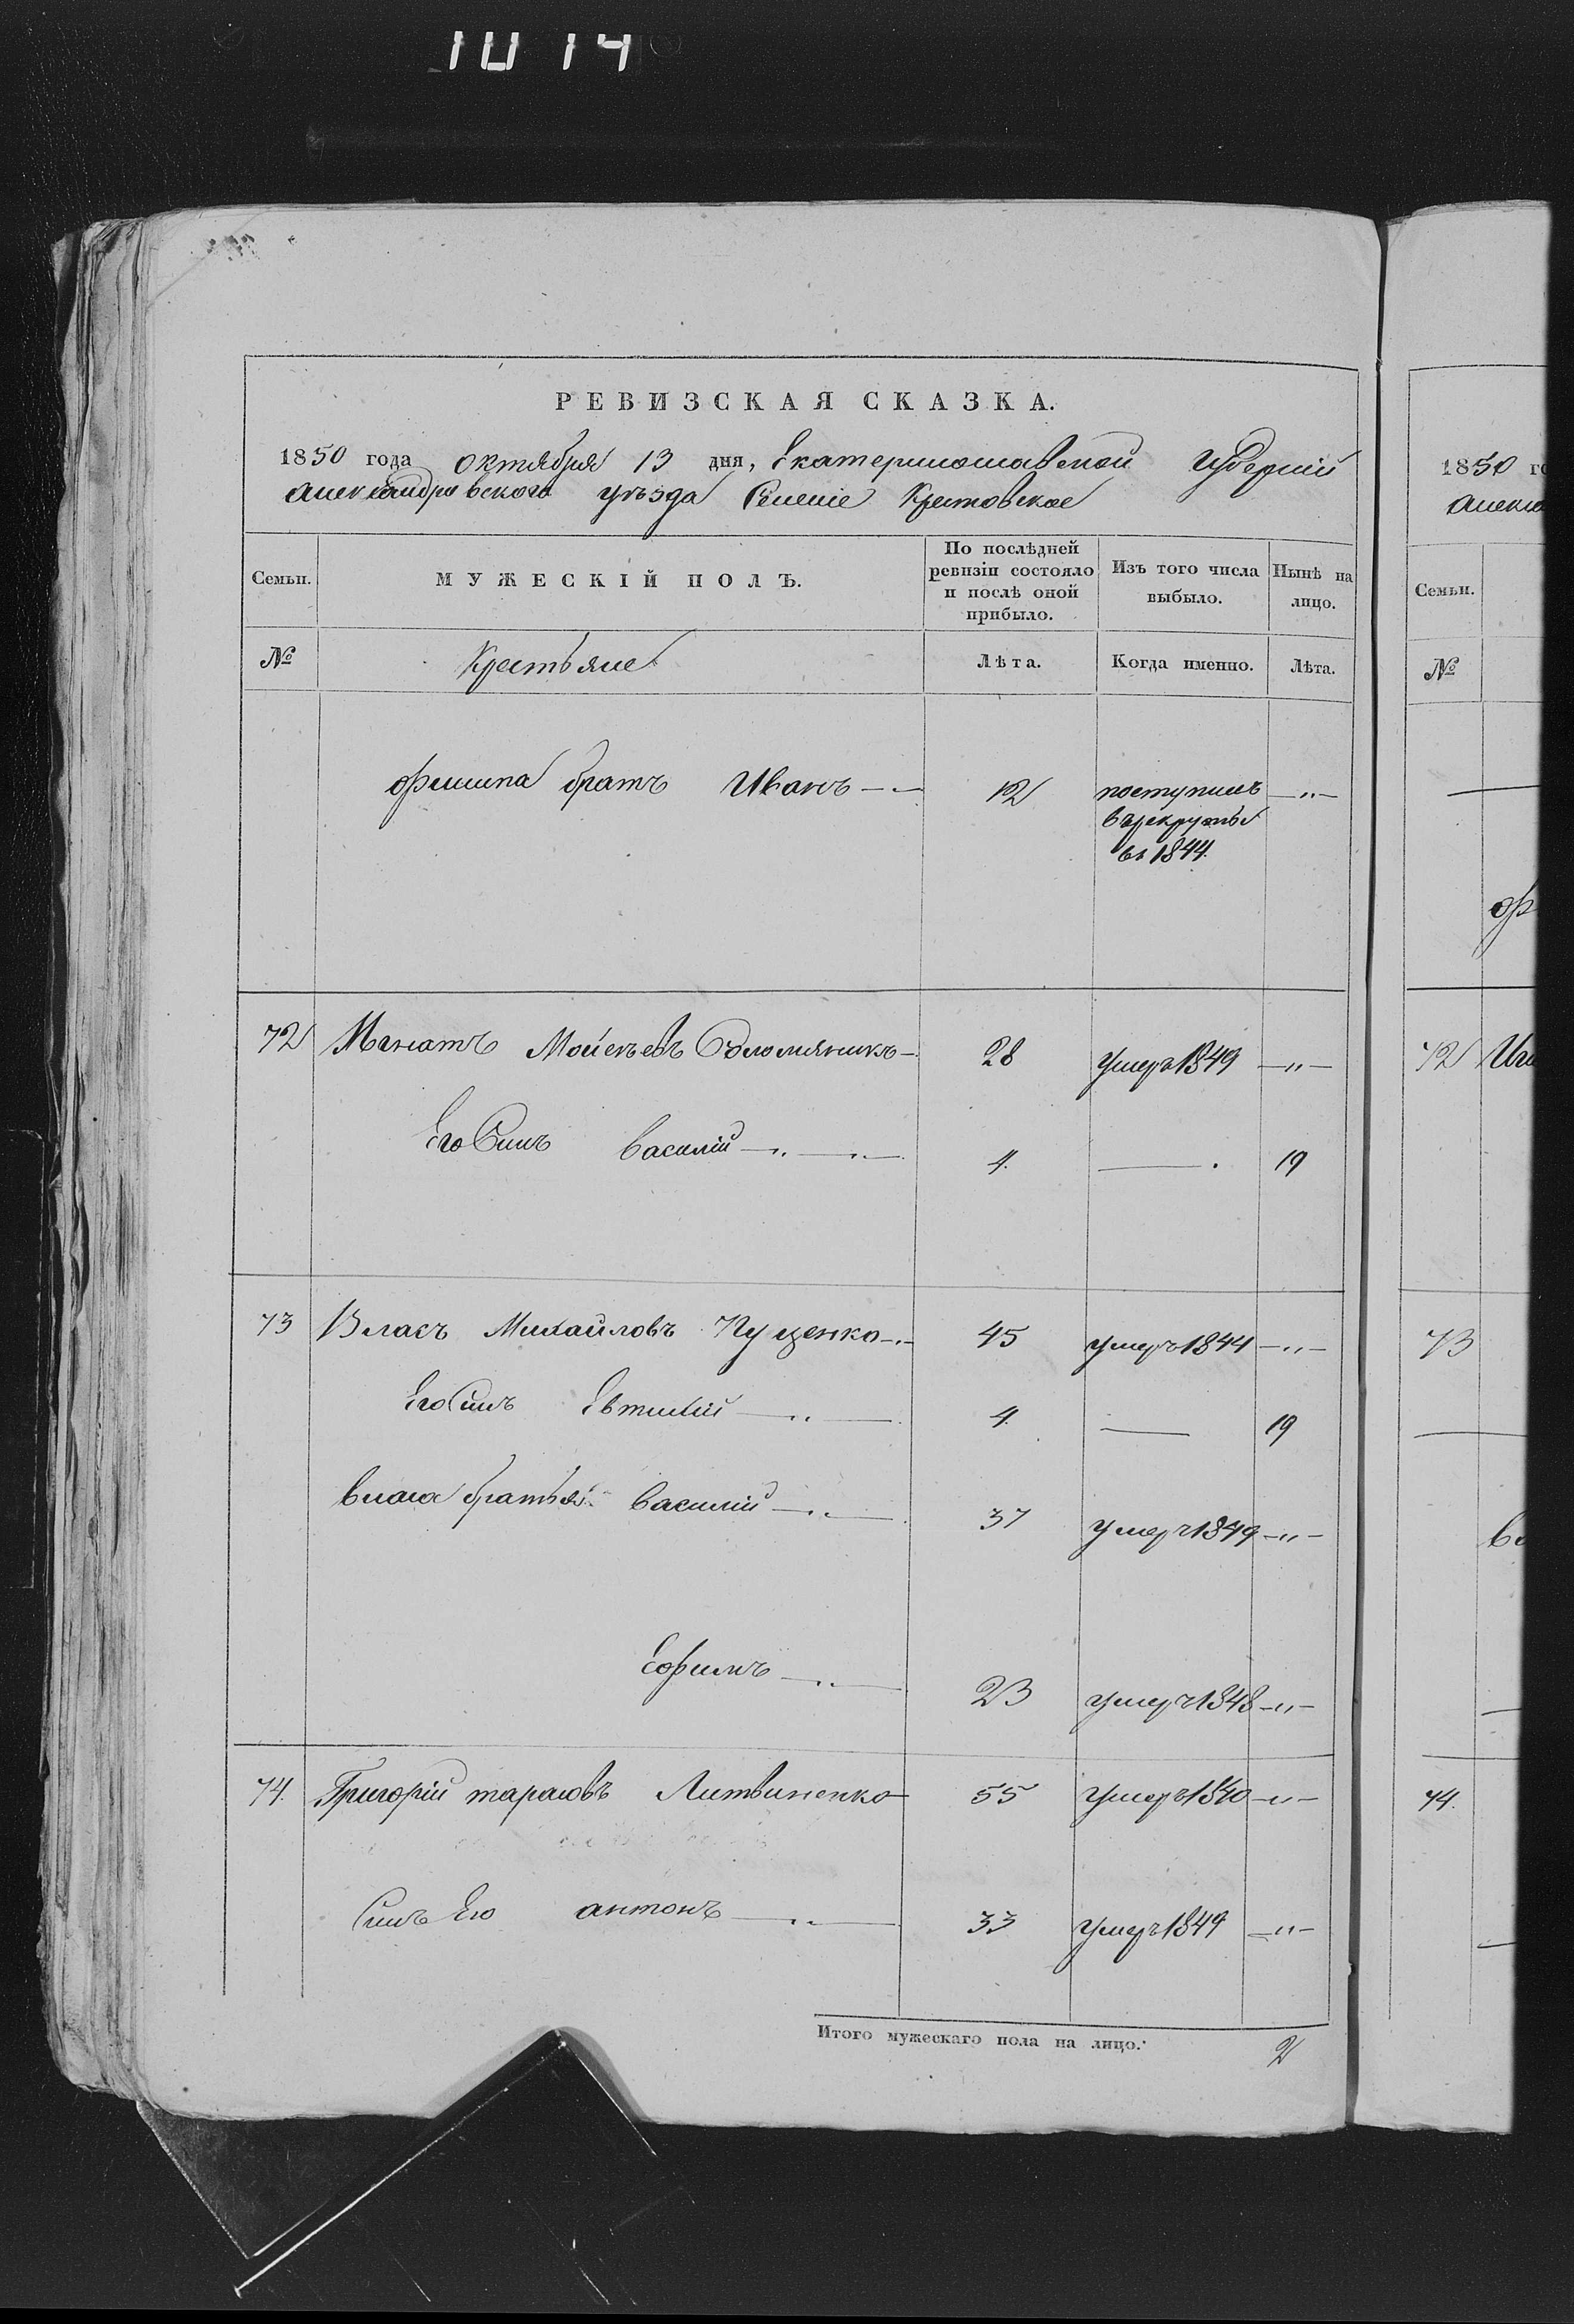 1014
РЕВИЗСКАЯ СКАЗКА.
1850 года октября 13 дня, Екатеринославской Губерніи
александровского уѣзда Селеніе Крестовское
Семьи. МУЖЕСКІЙ ПОЛЪ. По послѣдней ревизіи состояло и послѣ оной прибыло. Изъ того числа выбыло. Нынѣ на лицо.
№ Крестьяне Лѣта. Когда именно. Лѣта.
филипа братъ Иванъ 12 поступилъ
въ рекруты
въ 1844.
72 Моисѣевъ 28 умеръ 1849
Его Синъ василій 4. 19
73 Власъ Михайловъ Куценко 45 умеръ 1844
Его Синъ Евтихій 4. 19
власа братья: василій 37 умеръ 1849
Ефимъ 23 умеръ 1848
74. Григорій тарасовъ Литвиненко 55 умеръ 1840
Синъ Его антонъ 33 умеръ 1849
Итого мужескаго пола на лицо. 2
1850 го
алекса
Семьи.
№
оф
72
73
74.